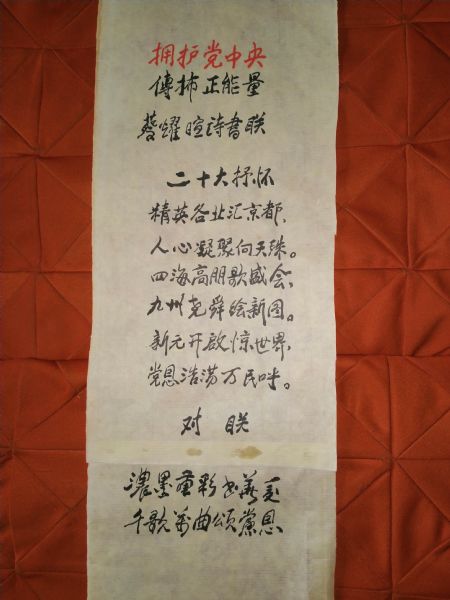 拥护党中央
傳播正能量
蔡耀暄诗書联
二十大抒怀
精英各业汇京都，
人心凝聚向天殊。
四海高朋歌盛会，
九州尧舜绘新图。
新元开啟惊世界，
党恩浩荡万民呼。
对联
濃墨重彩書善美
千歌萬曲頌黨恩